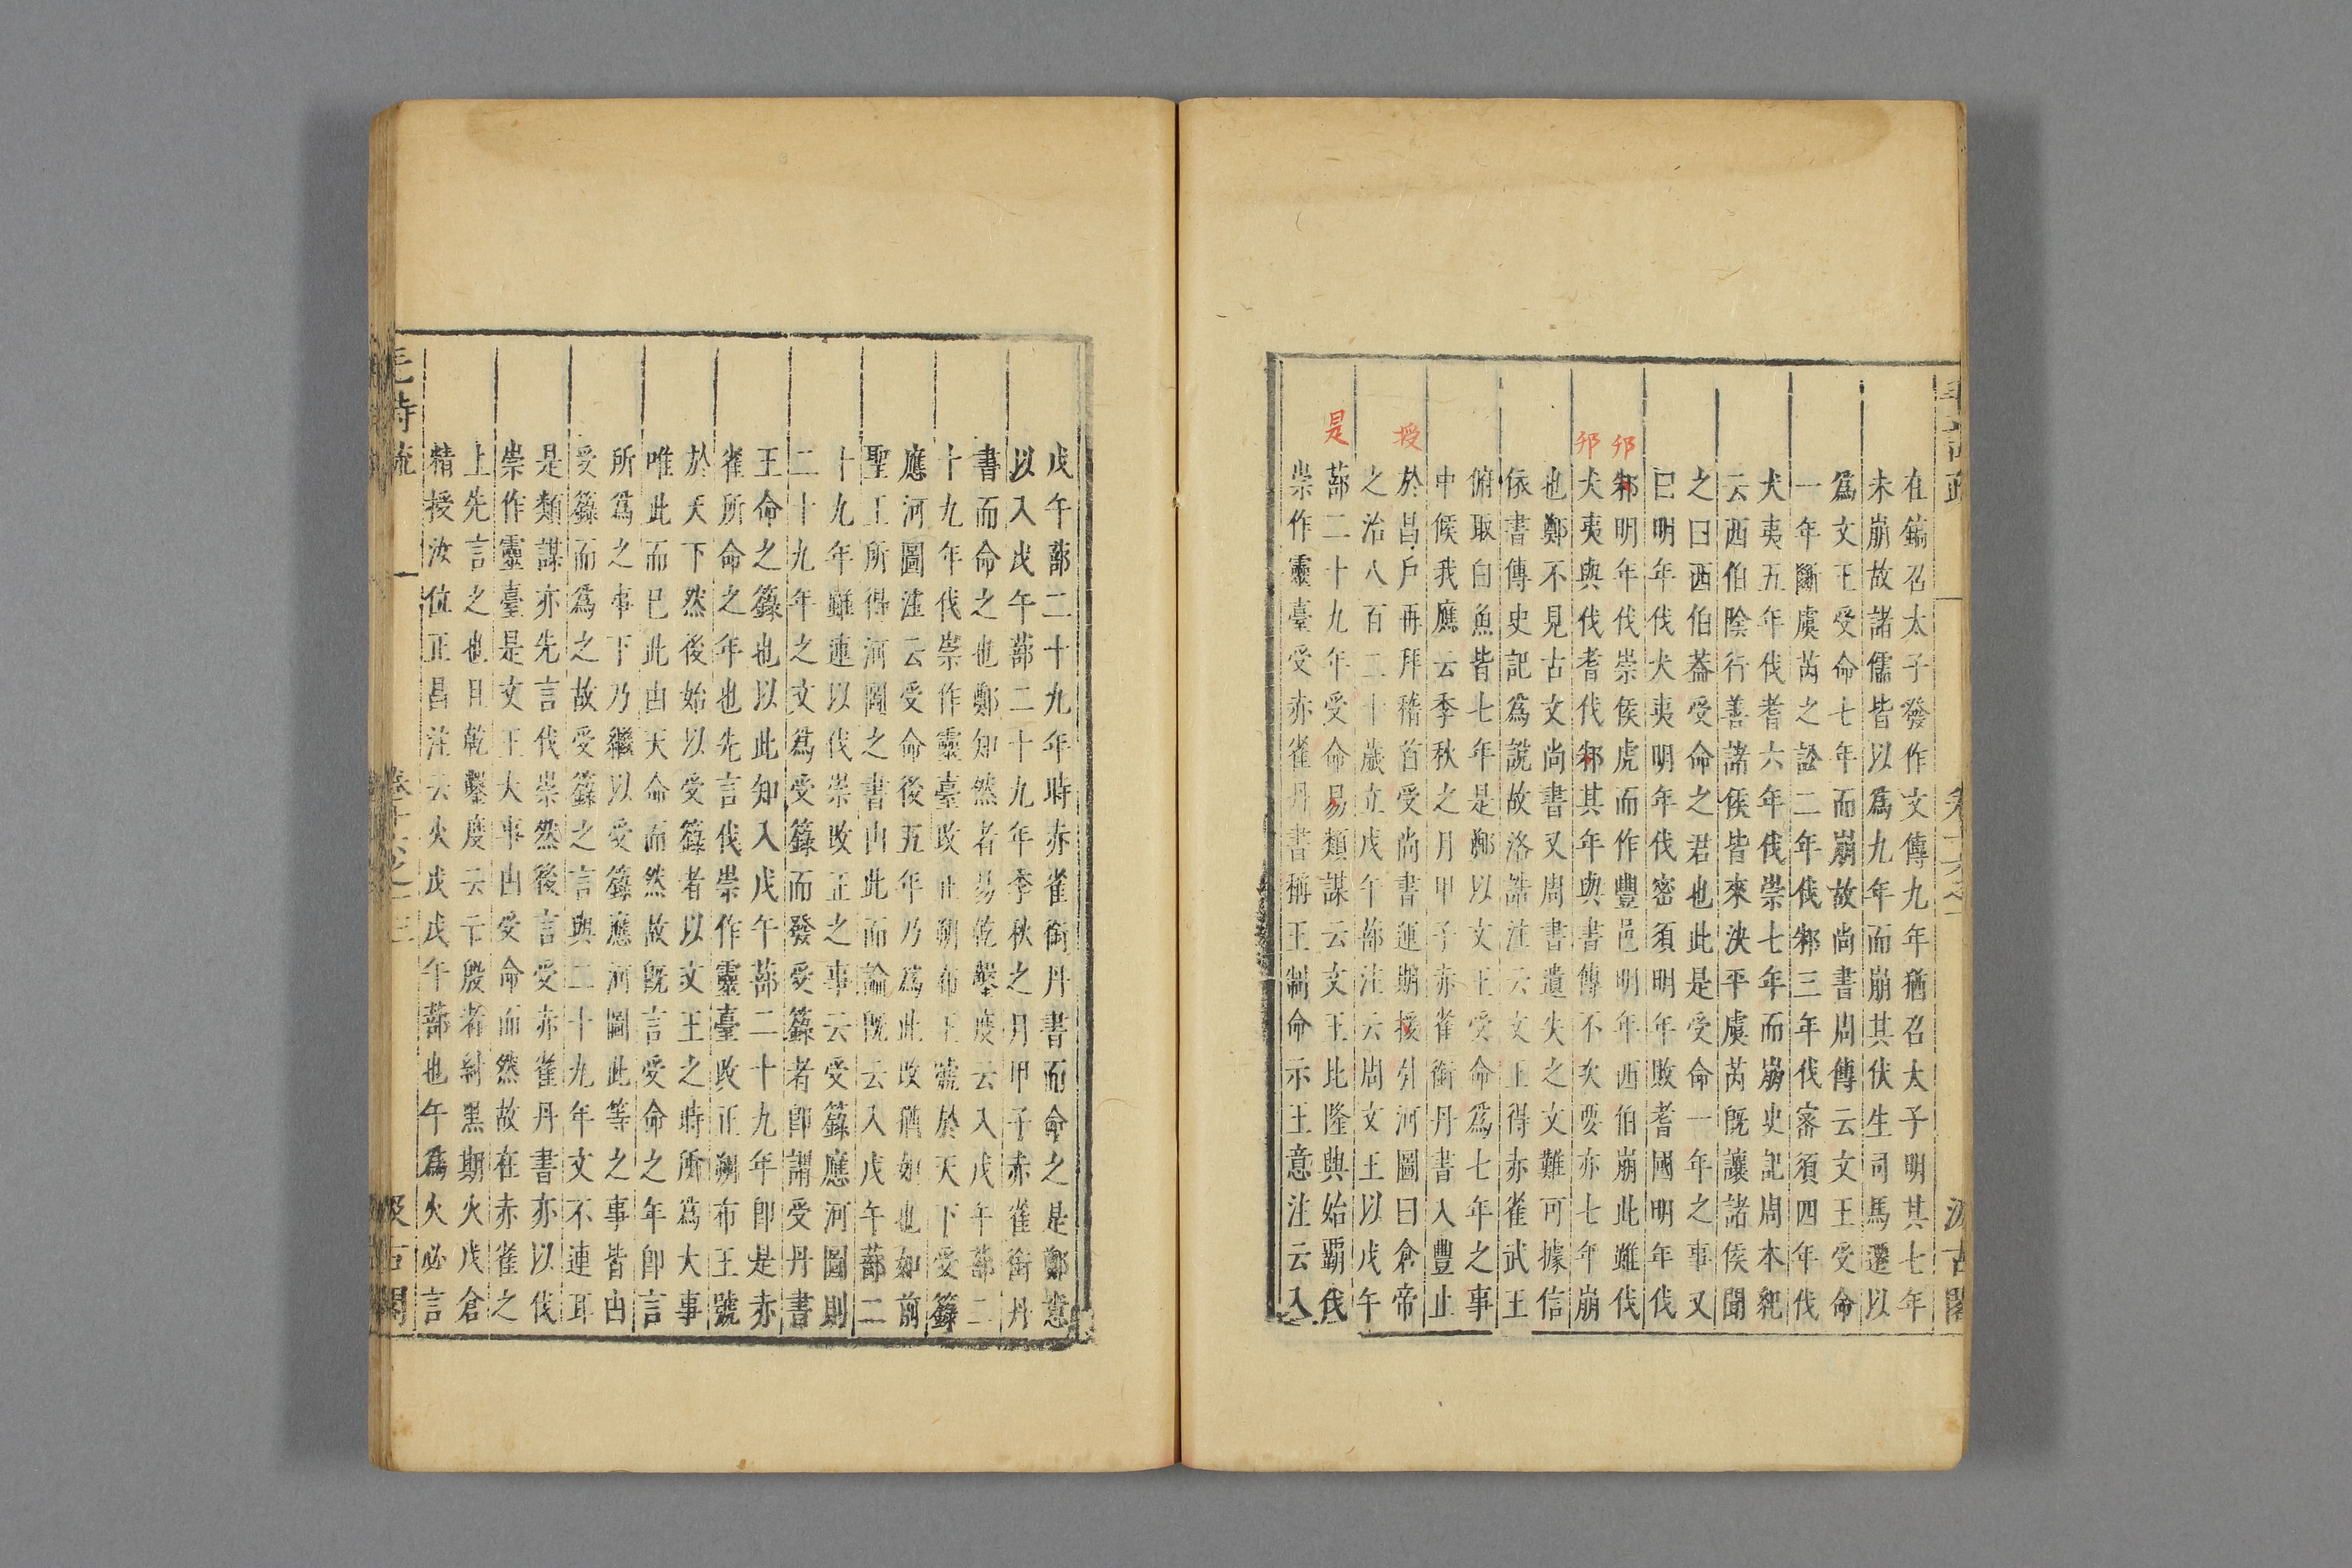 是
授
邘
邘
在鎬召太子發作文傳九年猶召太子明其七年
未崩故諸儒皆以爲九年而崩其伏生司馬遷以
爲文王受命七年而崩故尚書周傳云文王受命
一年斷虞芮之訟二年伐邾三年伐密須四年伐
犬夷五年伐耆六年伐崇七年而崩史記周本紀
云西伯陰行善諸侯皆來決平虞芮旣讓諸侯聞
之曰西伯葢受命之君也此是受命一年之事又
曰明年伐犬夷明年伐密須明年敗耆國明年伐
邾明年伐崇侯虎而作豐邑明年西伯崩此雖伐
犬夷與伐耆伐邾其年與書傳不次要亦七年崩
也鄭不見古文尚書又周書遺失之文難可據信
依書傳史記爲說故洛誥注云文王得赤雀武王
俯取白魚皆七年是鄭以文王受命爲七年之事
中候我應云季秋之月甲子赤雀銜丹書入豐止
於昌戶再拜稽首受尚書運期授引河圖曰倉帝
之治八百二十歲立戊午蔀注云周文王以戊午
蔀二十九年受命易類謀云文王比隆興始霸伐
崇作靈臺受赤雀丹書稱王制命示王意注云入
戊午蔀二十九年時赤雀銜丹書而命之是鄭意
以入戊午蔀二十九年季秋之月甲子赤雀銜丹
書而命之也鄭知然者易乾鑿度云入戊午蔀二
十九年伐崇作靈臺改正朔布王號於天下受籙
應河圖注云受命後五年乃爲此改猶如也如前
聖王所得河圖之書由此而論旣云入戊午蔀二
十九年雖連以伐崇改正之事云受籙應河圖則
二十九年之文爲受籙而發受籙者卽謂受丹書
王命之籙也以此知入戊午蔀二十九年卽是赤
雀所命之年也先言伐崇作靈臺改正朔布王號
於天下然後始以受籙者以文王之時所爲大事
唯此而已此由天命而然故旣言受命之年卽言
所爲之事下乃繼以受籙應河圖此等之事皆由
受籙而爲之故受籙之言與二十九年文不連耳
是類謀亦先言伐崇然後言受赤雀丹書亦以伐
崇作靈臺是文王大事由受命而然故在赤雀之
上先言之也且乾鑿度云亡殷者紂黑期火戊倉
精授汝位正昌注云火戊戊午蔀也午爲火必言
毛詩疏
汲古閣